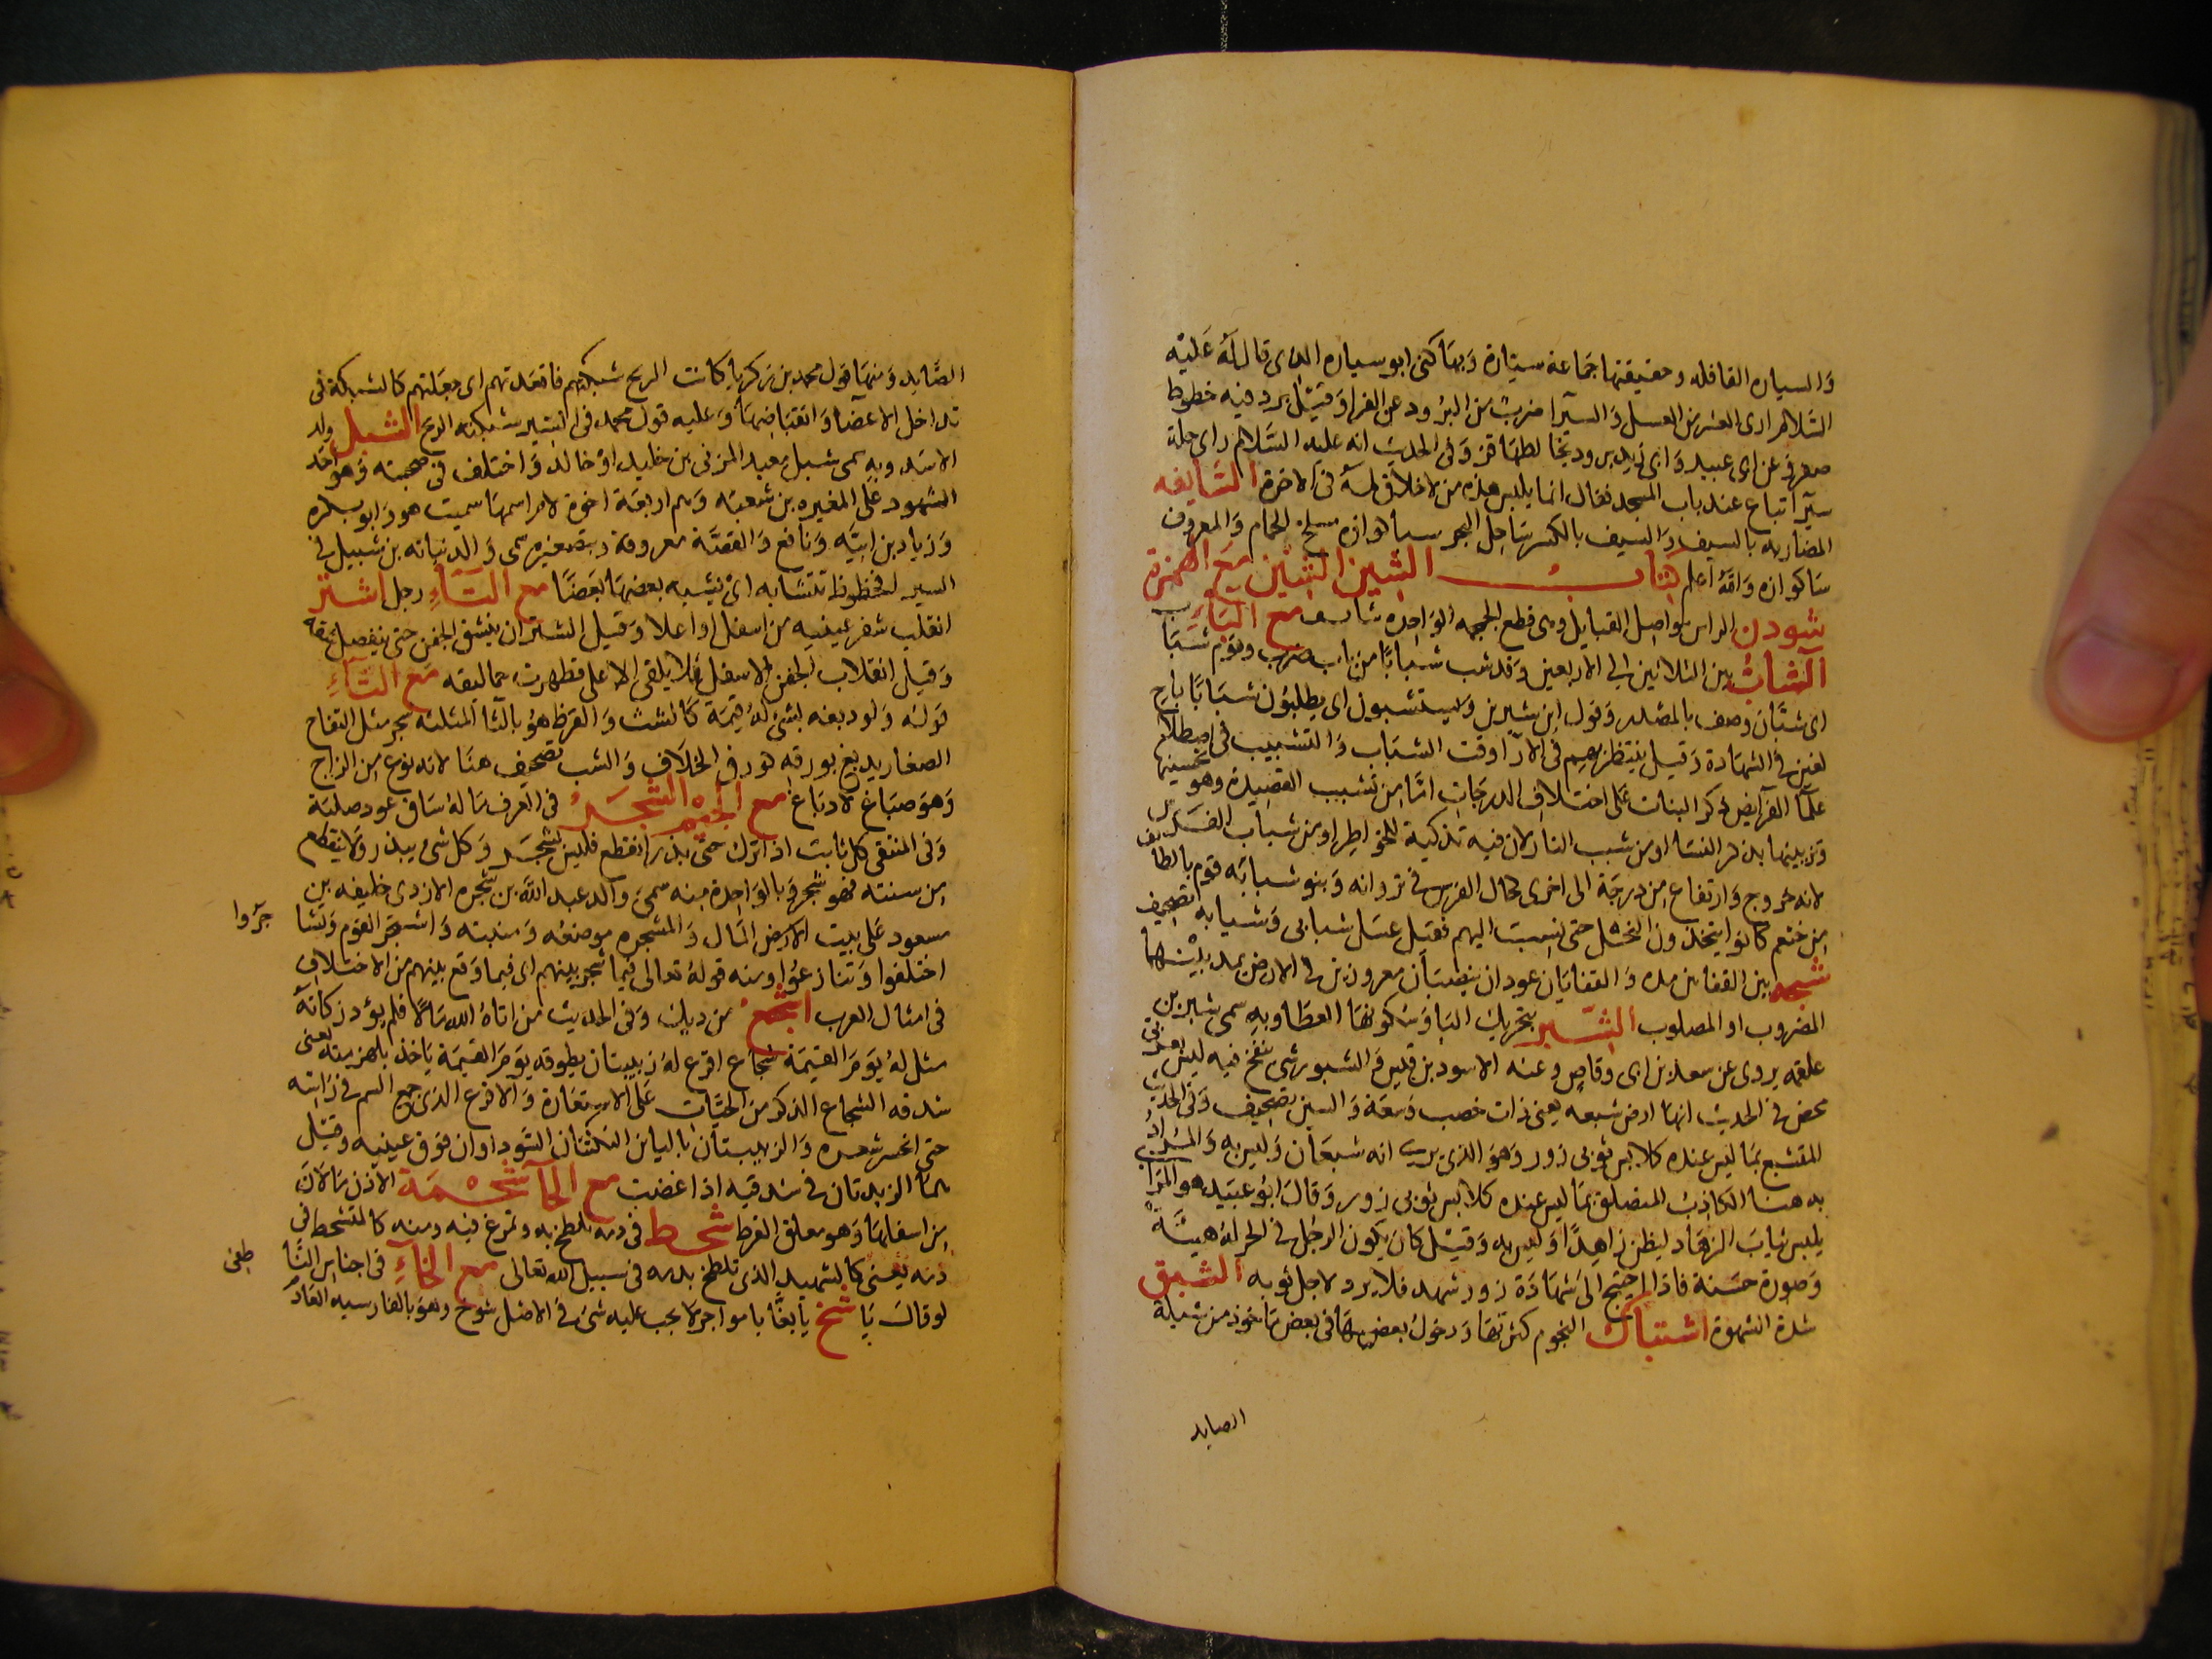 والسياره القافله وحقيقتها جماعة سيارة وبها كنى ابو سياره الذى قال له عليه
السلام ادى العشر من العسل والسيرا ضرب من البرود عن الفرا وقيل برد فيه خطوط
صفر وعن ابى عبيد وابى زيد برود يخالطها قز وفى الحديث انه عليه السلام راى حلة
سيرا تباع عند باب المسجد فقال انما يلبس هذه من لا خلاق له فى الاخرة السايفه
المضاربه بالسيف والسيف بالكسر ساحل البحر سالوازه مسلخ الحمام والمعروف
ساكوازه والله اعلم كتاب الشين الشين مع الهمزة
شودن الراس مواصل القبايل وهى قطع الجمجمه الواحده شان مع الباء
الشاب بين الثلاثين الى الاربعين وقد شب شبابا من باب ضرب وقوم شباب
اى شبان وصف بالمصدر وقول ابن سيرين ويستشبون اى يطلبون شبابا بالغ
لغين فى الشهادة وقيل ينتظر بهم فى الادا وقت الشباب والتشبيب فى اصطلاح
علما الفرايض ذكر البنات على اختلاف الدرجات اما من تشبيب القصيدة وهو تحسينها
وتزيينها بذكر النسا او من شبب النار لان فيه تذكية للخواطر او من شباب الفرس
لانه خروج وارتفاع من درجة الى اخرى كحال الفرس فى نزوانه وبنو شبابه قوم بالطايف
من خثعم كانوا يتخذون النحل حتى نسبت اليهم فقيل عسل شبابى وشيابه تصحيف
شبحه بين العقابين مده والعقابان عودان ينصبان مغروزين فى الارض يمد بينهما
المضروب او المصلوب الشبر بتحريك البا وسكونها العطا وبه سمى شبر بن
علقمه يروى عن سعد بن ابى وقاص وعنه الاسود بن قيس والشبور شى ينفخ فيه ليس بعربى
محض فى الحديث انها ارض شبعه يعنى ذات خصب وسعة والسين تصحيف وفى الحديث
المتشبع بما ليس عنده كلابس ثوبى زور وهو الذى يرى انه شبعان وليس به والمراد
به هنا الكاذب المتصلف بما ليس عنده كلابس ثوبى زور وقال ابو عبيد هو المرائى
يلبس ثياب الزهاد ليظن زاهدا وليس به وقيل كان يكون الرجل فى الحى له هيئة
وصورة حسنة فاذا احتيج الى شهادة زور شهد فلا يرد لاجل ثوبه الشبق
شدة الشهوة اشتباك النجوم كثرتها ودخول بعضها فى بعض ماخوذ من شبكة
الصايد
الصايد ومنها قول محمد بن زكريا كانت الريح شبكتهم فاقعدتهم اى جعلتهم كالشبكة فى
تداخل الاعضا وانقباضها وعليه قول محمد فى السير شبكته الريح الشبل ولد
الاسد وبه سمى شبل بن معبد المزنى بن خليد او خالد واختلف فى صحبته وهو احد
الشهود على المغيره بن شعبه وهم اربعة اخوة لام اسمها سميت هو وابو بكره
وزياد بن ابيه ونافع والقصة معروفة وبتصغيره سمى والد نباته بن شبيل فى
السير الخطوط تتشابه اى يشبه بعضها بعضا مع التاء رجل اشتر
انقلب شفر عينيه من اسفل او اعلا وقيل الشتر ان ينشق الجفن حتى ينفصل شقه
وقيل انقلاب الجفن الاسفل فلا يلقى الاعلى فظهرت حماليقه مع الثاء
قوله ولو دبغه بشى له قيمة كالشث والقرظ هو بالثا المثلثه شجر مثل التفاح
الصغار يدبغ بورقه كورق الخلاف والشب تصحيف هنا لانه نوع من الزاج
وهو صباغ لا دباغ مع الجيم الشجر فى العرف ما له ساق عود صلبة
وفى المنتقى كل نابت اذا ترك حتى بذر انقطع فليس بشجر وكل شى يبذر ولا ينقطع
من سنته فهو شجر وبالواحدة منه سمى والد عبد الله بن شجره الازدى خليفه بن
مسعود على بيت المال والمشجره موضعه ومنبته واشتجر القوم وتشا جروا
اختلفوا وتنازعوا ومنه قوله تعالى فيما شجر بينهم اى فيما وقع بينهم من الاختلاف
فى امثال العرب اشجع من ديك وفى الحديث من اتاه الله مالا فلم يؤد زكاته
مثل له يوم القيمة شجاع اقرع له زبيبتان يطوقه يوم القيمة ياخذ بلهزمتيه يعنى
شدقه الشجاع الذكر من الحيات على الاستعارة والاقرع الذى جمع السم فى راسه
حتى انحسر شعره والزبيبتان بالباين النكتتان السوداوان فوق عينيه وقيل
هما الزبدتان فى شدقيه اذا غضب مع الحا شحمة الاذن ما لان
من اسفلها وهو معلق القرط شحط فى دمه تلطخ به وتمرغ فيه ومنه كالمتشحط فى
دمه يعنى كالشهيد الذى تلطخ بدمه فى سبيل الله تعالى مع الخاء فى اجناس النا طفى
لو قال يا شخ يا بغا يا مواجر لا يجب عليه شى فى الاصل شوخ وهو بالفارسيه العاد